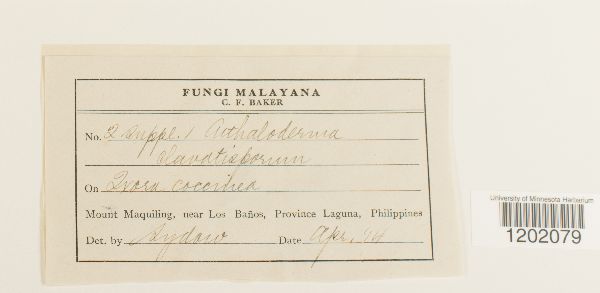 FUNGI MALAYANA
C. F. BAKER
No. 2 suppl. / Aithaloderma
clavatisporum
On Ixora coccinea
Mount Maquiling, near Los Baños, Province Laguna, Philippines
Det. by Sydow Date Apr. '14
University of Minnesota Herbarium
1202079